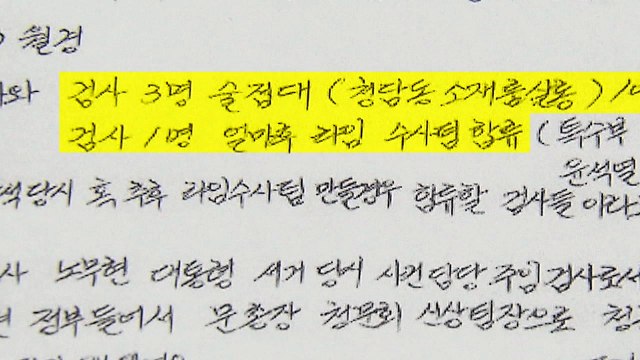 월경
와 검사 3명 술접대 (청담동 소재룸살롱) /
검사 1명 얼마후 라임 수사팀 합류 (특수부
윤석열
석당시 혹 추후 라임수사팀 만들경우 합류할 검사들 이라
사 노무현 대통령 서거 당시 사건담당 주임검사로서
정부들어서 문총장 청문회 신상팀장으로 청